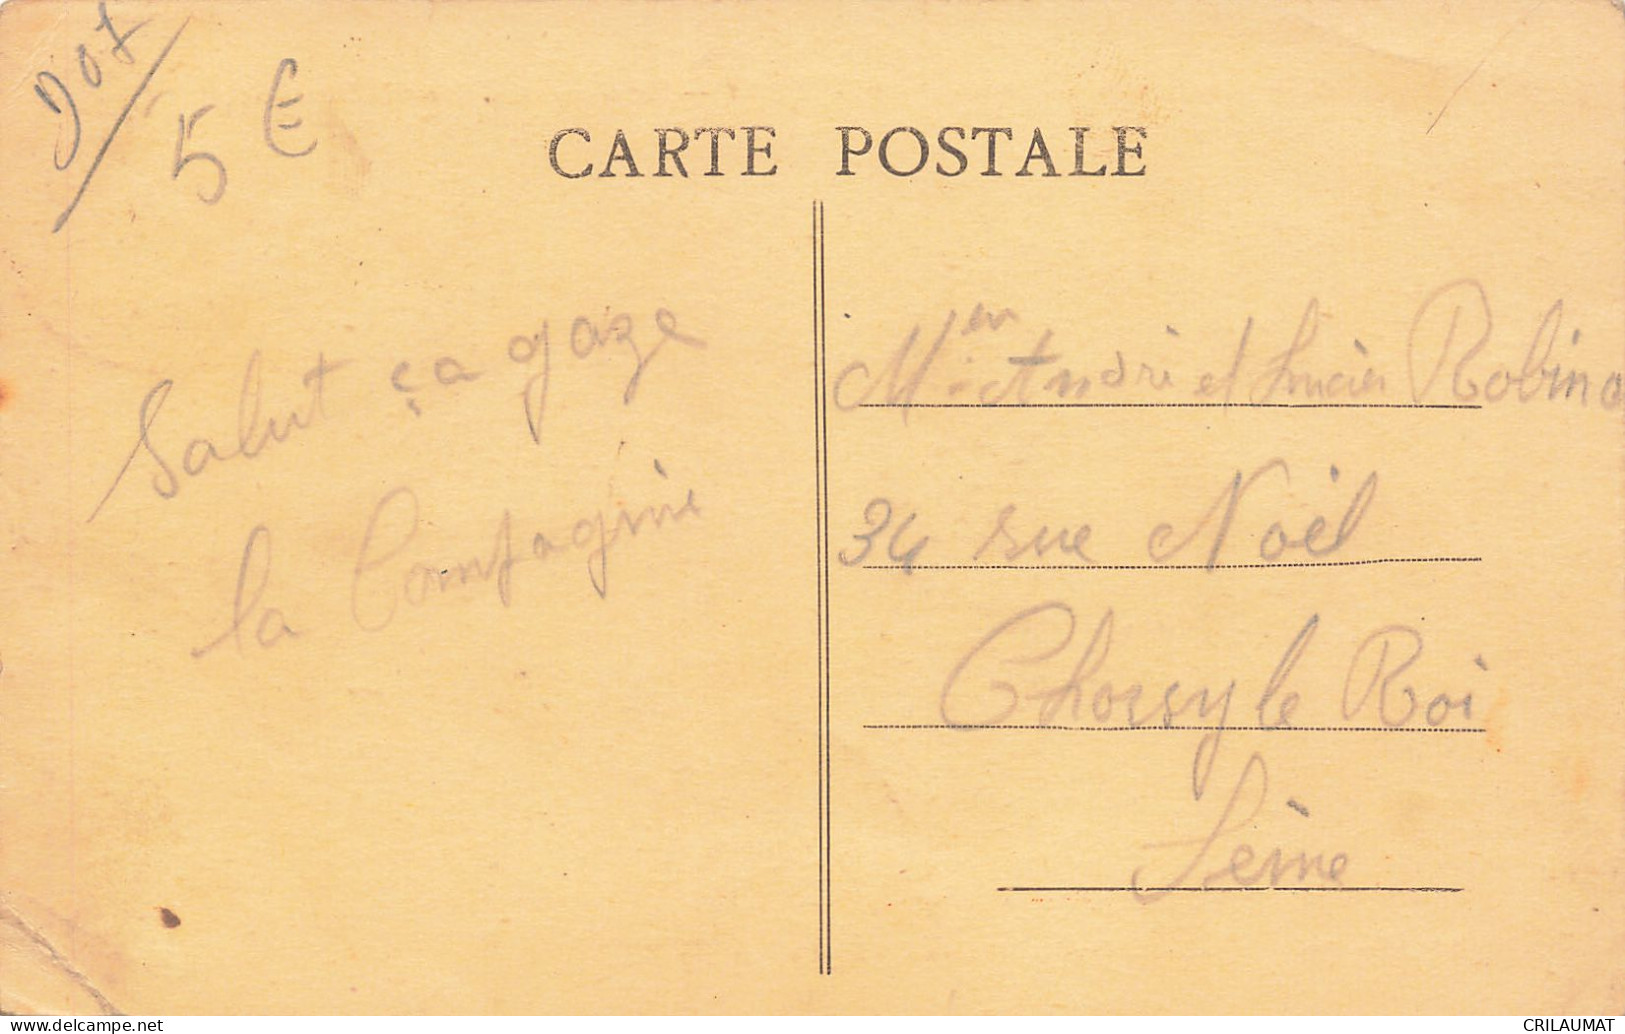 5 €
CARTE POSTALE
Salut ça gaze
la Compagnie
Mien André et Lucien Robin
34 rue Noël
Choisy le Roi
Seine
www.delcampe.net
CRILAUMAT